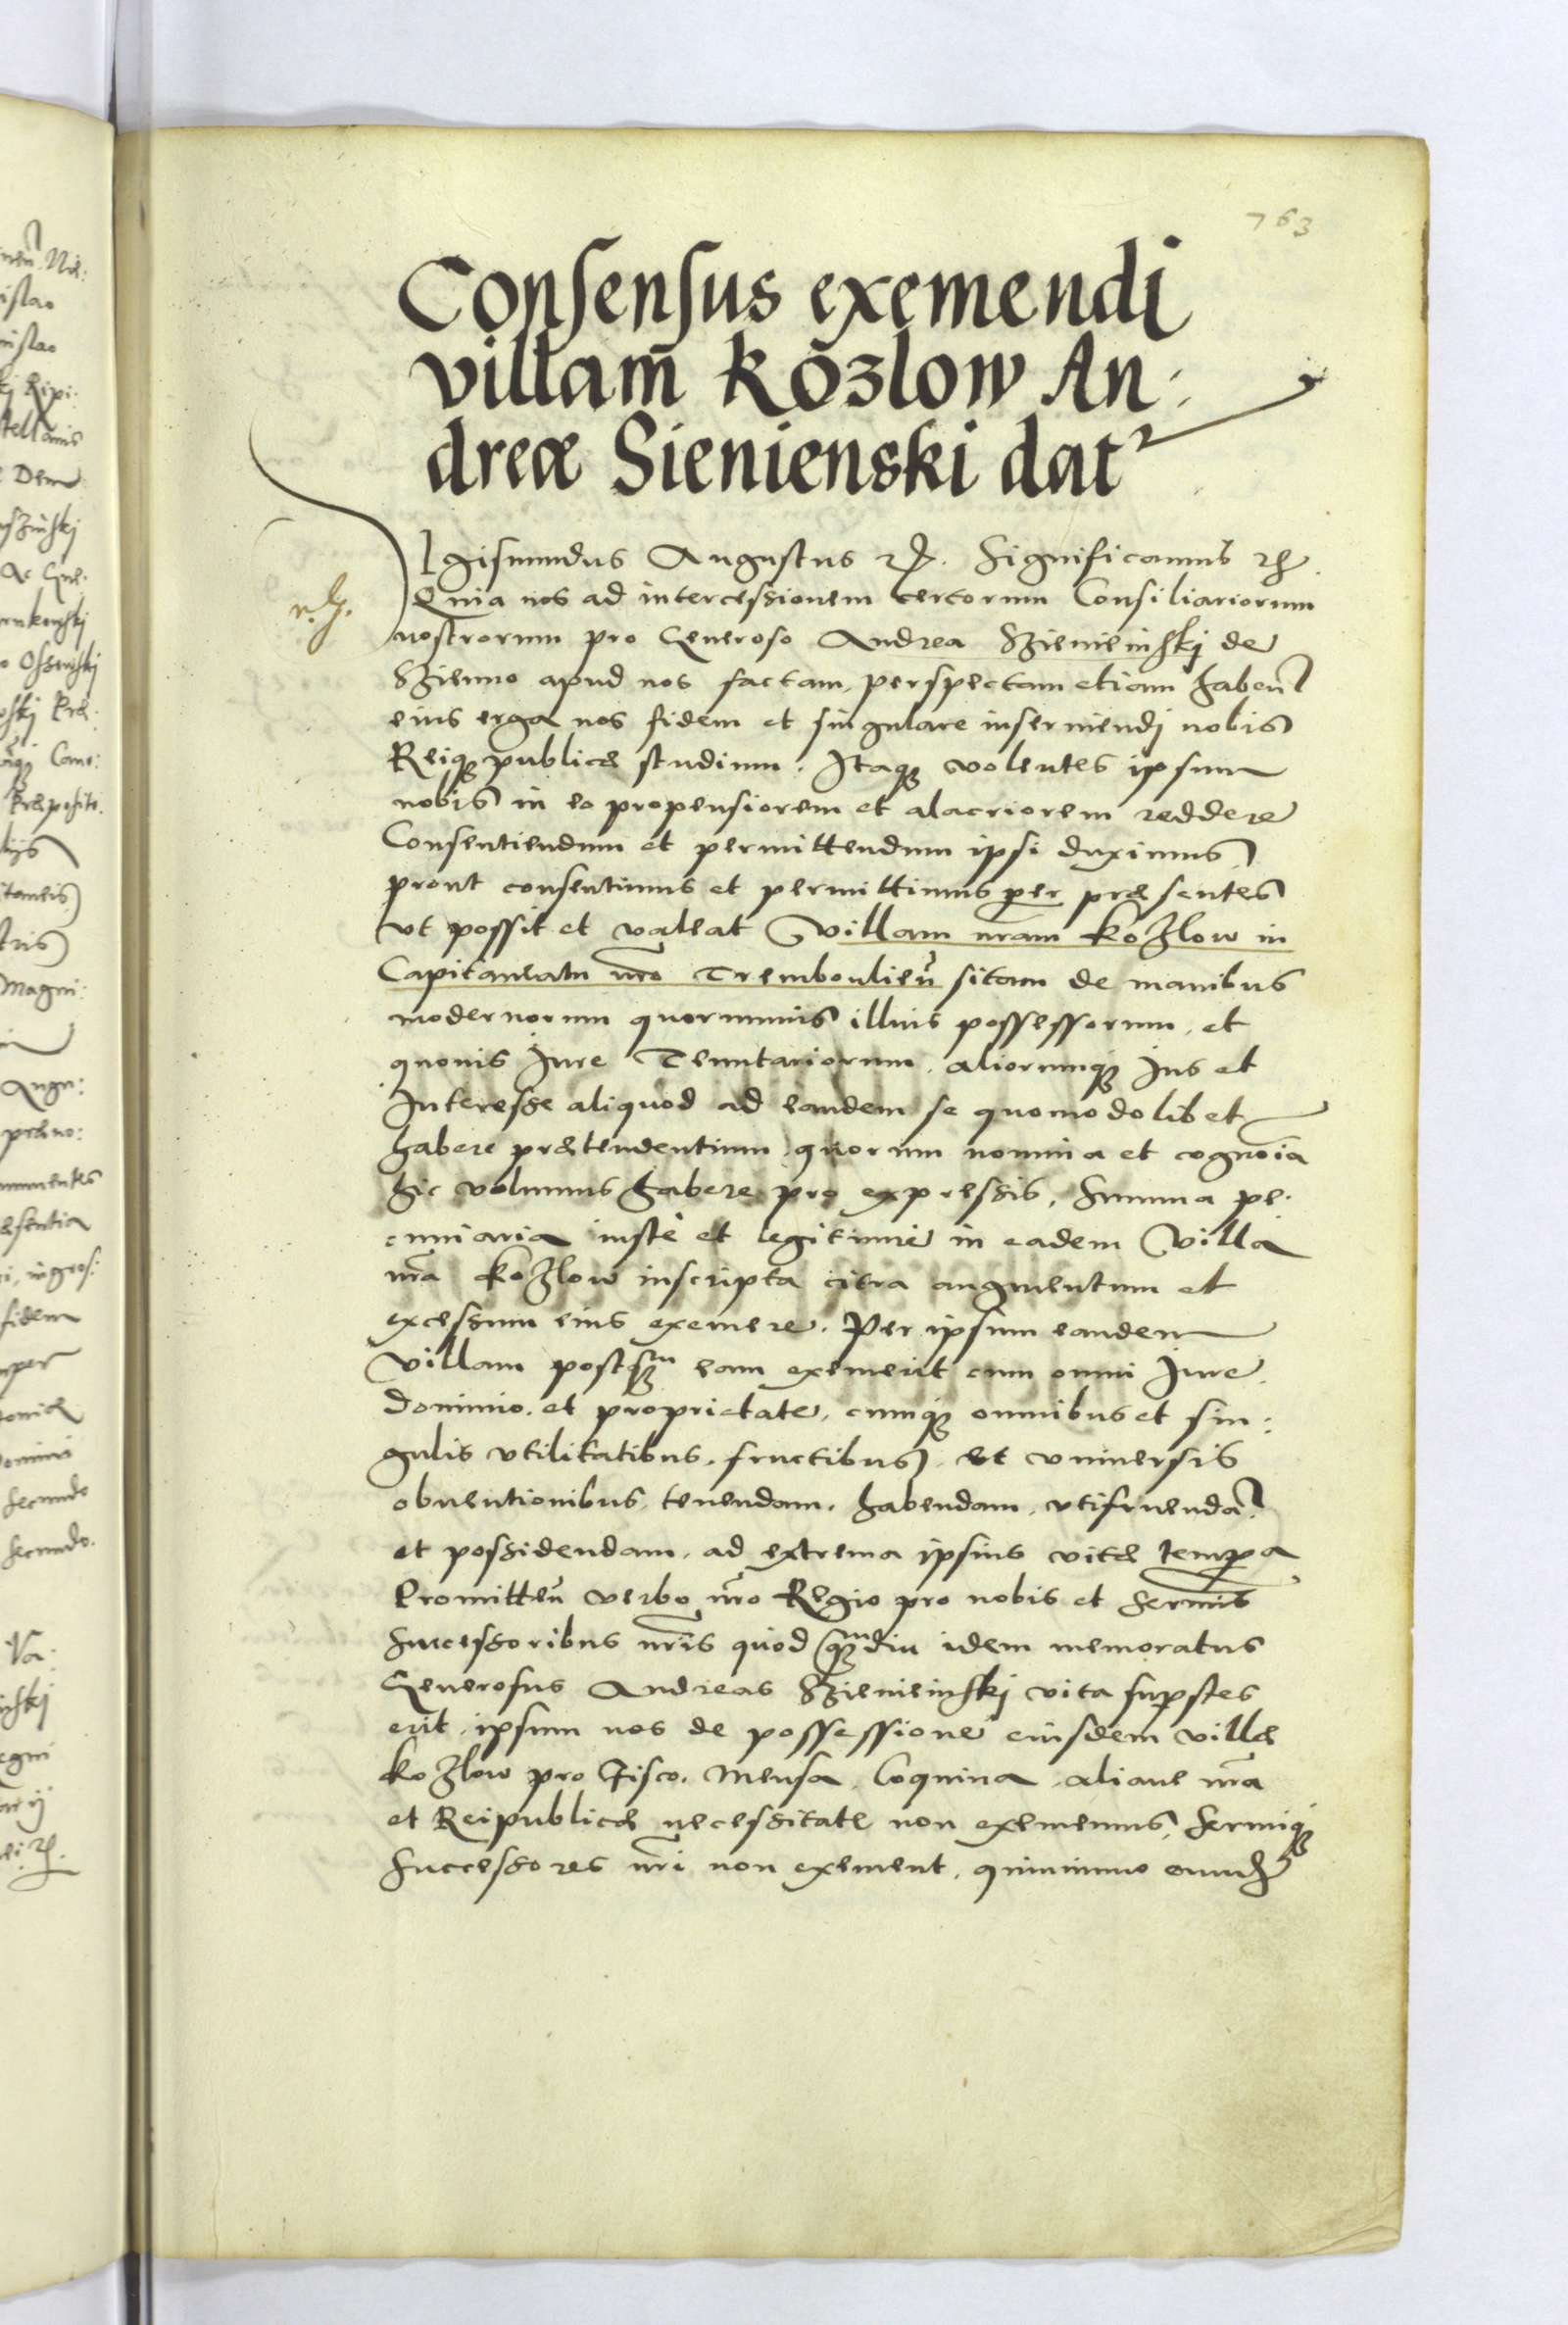 763
Consensus exemendi
villam̄ Kozlow An:
dreæ Sienienski dat
Igismundus Augustus Significamus
Quia nos ad intercessionem certorum Consiliariorum
nostrorum pro Generoso Andrea Szienieński de
Szienno apud nos factam, perspectam etiam haben̄
eius erga nos fidem et singulare inserviendj nobis
Reiqꝫ publicæ studium. Itaqꝫ volentes ipsum
nobis in eo propensiorem et alacriorem reddere
Consentiendum et permittendum ipsi duximus,
prout consentimus et permittimus per præsentes
vt possit et valeat Villam nrãm Kozlow in
Capitaneatu nrõ Tremboulien̄ sitam de manibus
modernorum quorumuis illius possessorum, et
quouis Iure Tenutariorum, aliorumqꝫ Ius et
Interesse aliquod ad eandem se quomodolibet
habere prætendentium, quorum nomina et cognoĩa
hic volumus habere pro expressis, Summa pe:
cuniaria iuste et legitime in eadem Villa
nrã Kozlow inscripta citra augmentum et
excessum eius exemere. Per ipsum eandem
Villam postqꝫm eam exemerit cum omni Iure,
dominio, et proprietate, cumqꝫ omnibus et sin:
gulis vtilitatibus, fructibus, et vniuersis
obuentionibus, tenendam, habendam, vtifruendã
et possidendam, ad extrema ipsius vitæ tempora
Promitten̄ verbo nrõ Regio pro nobis et Sermis
Successoribus nrĩs quod qꝫmdiu idem memoratus
Generosus Andreas Szienieńskj vita supstes
erit, ipsum nos de possessione eiusdem villæ
Kozlow pro Fisco, Mensa, Coquina, aliaue nrã
et Reipublicæ necessitate non exememus, Sermiqꝫ
Successores nrĩ non exement, quinimmo